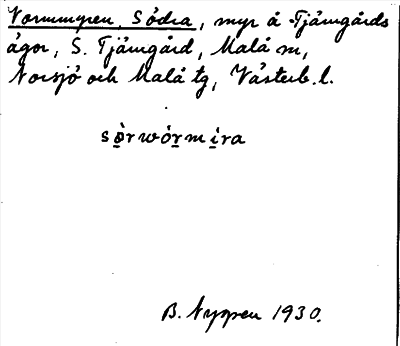 Vormmyren, Södra, myr å Tjämgårds
ägor, S. Tjämgård, Malå sn,
Norsjö och Malå tg, Västerb. l.
sọ̀rwórmịra
B. Nygren 1930.